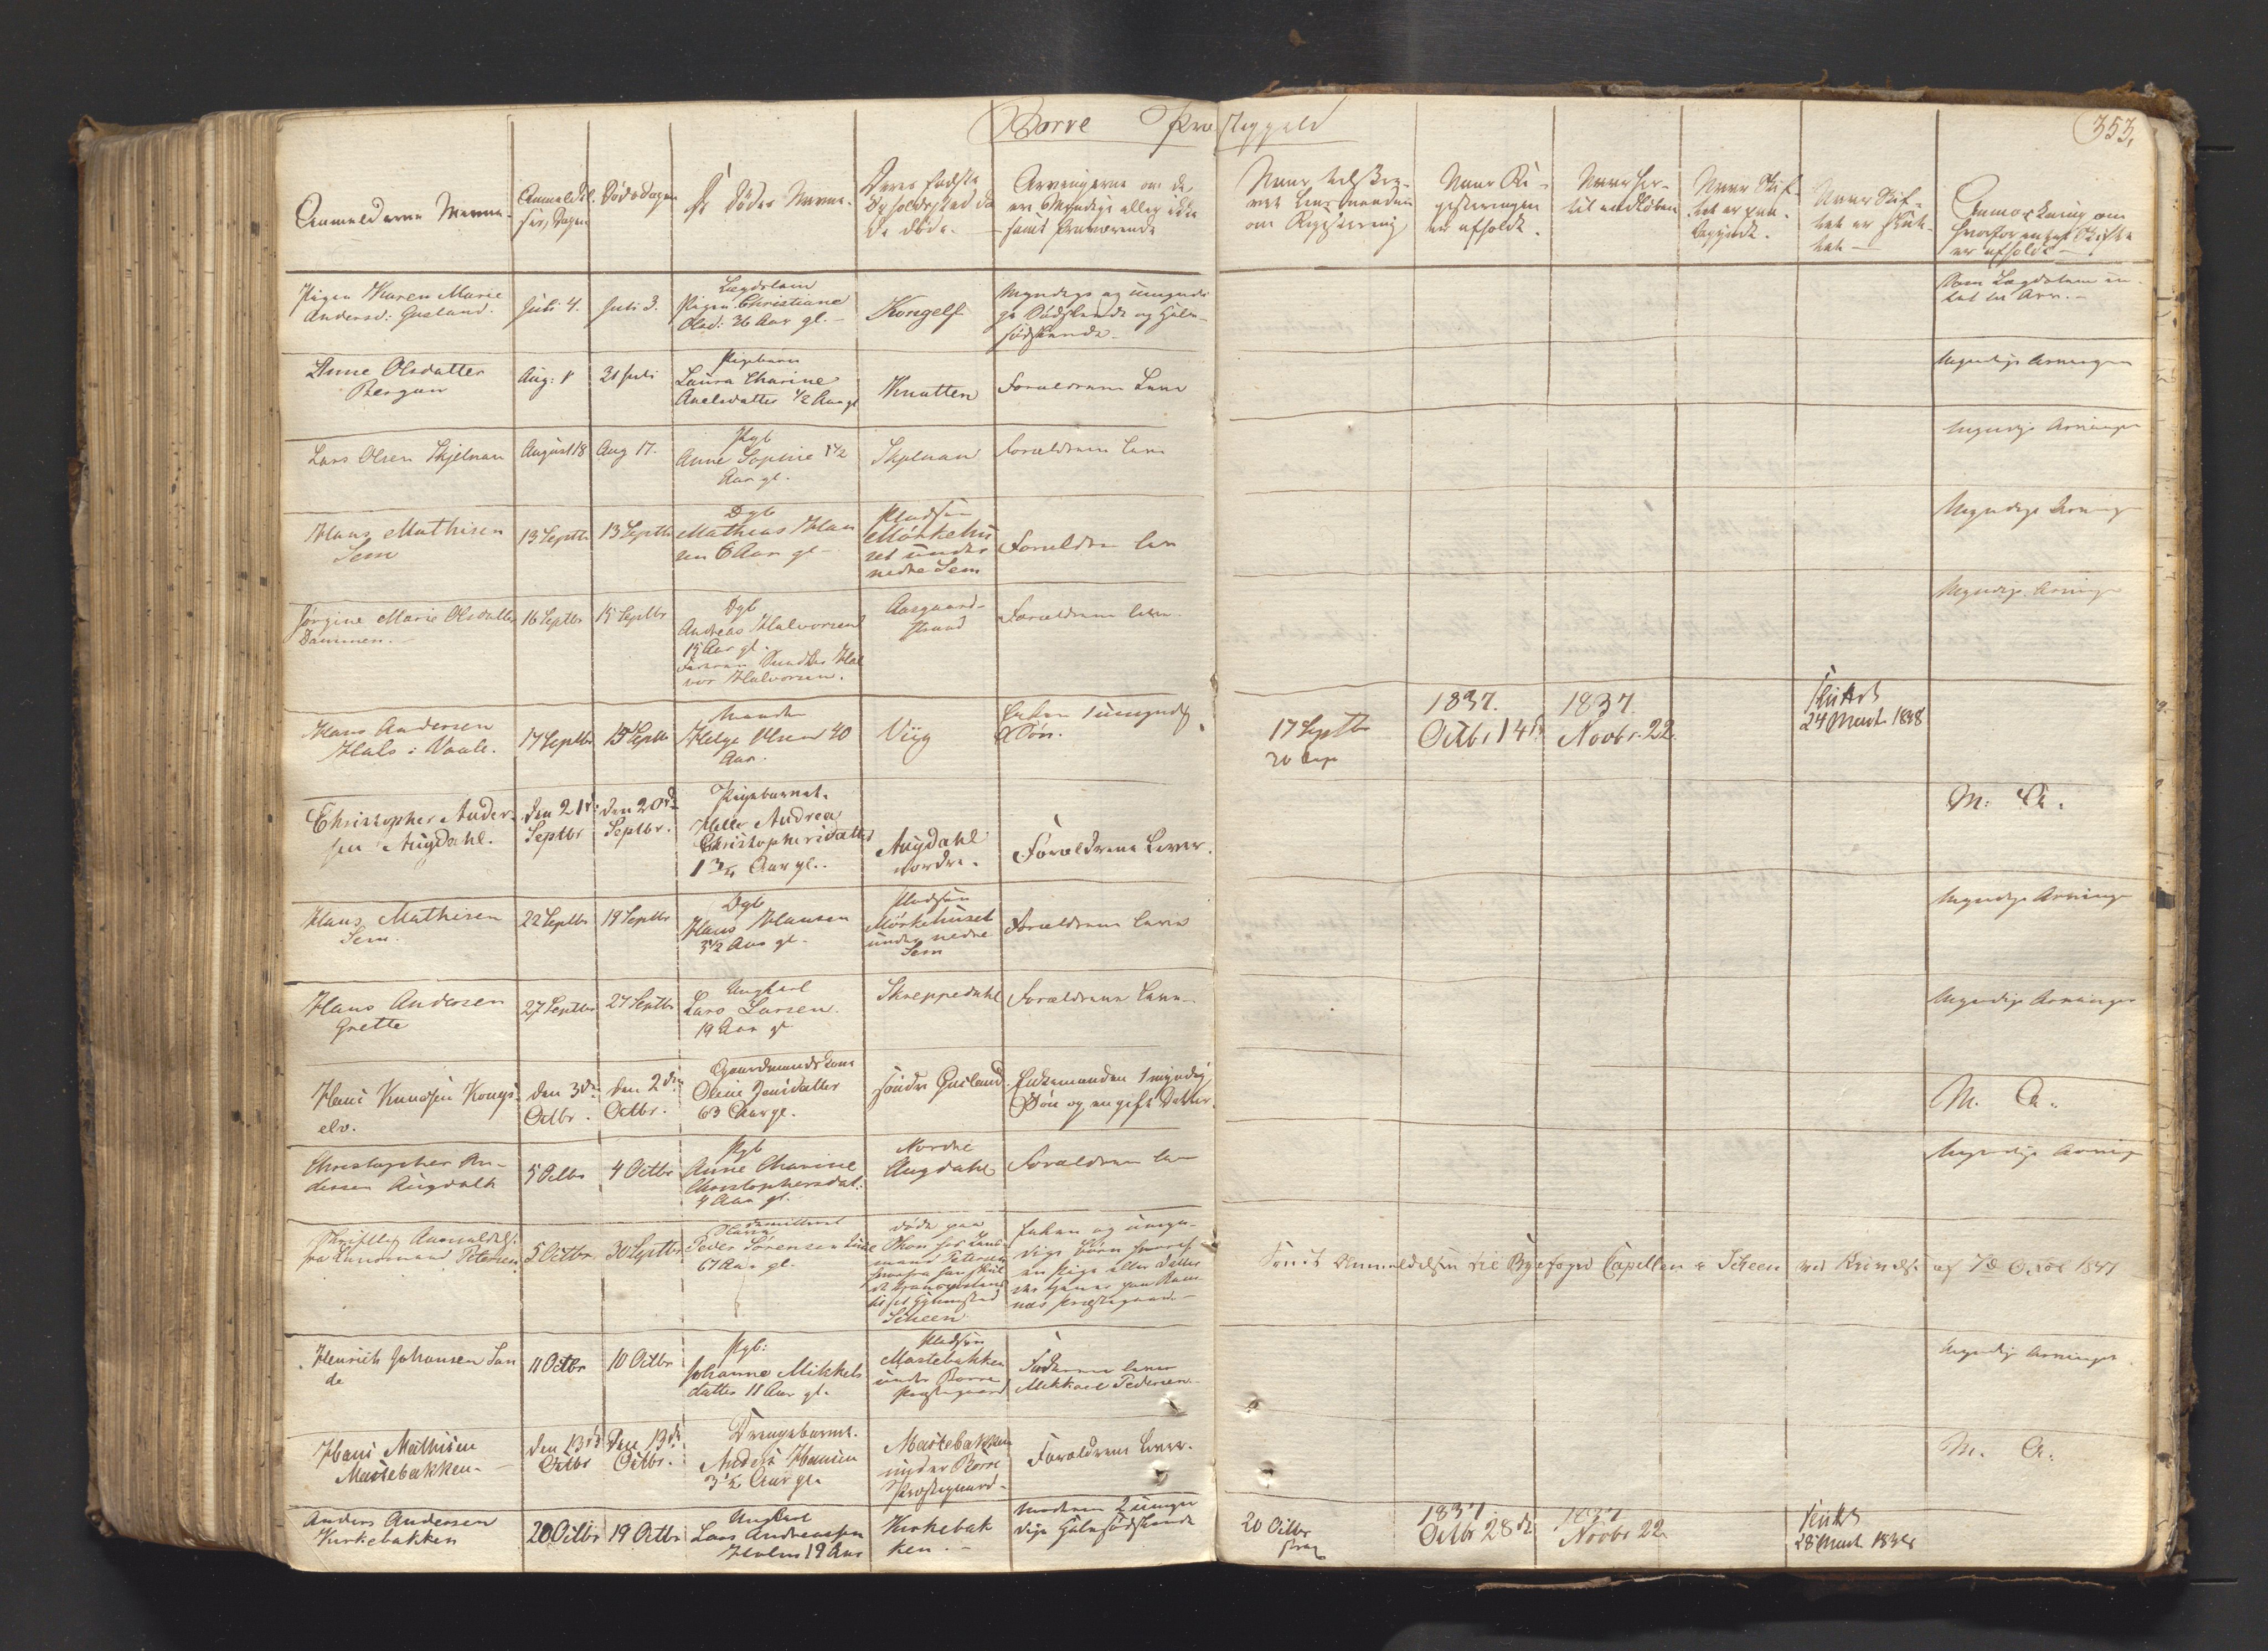 Borre Præstegjeld
353.
Anmelderens Navne.
Anmeldel-
ses Dagen
Dødsdagen
De Dødes Navne.
Deres sidste
Opholdssted da
de døde.
Arvingerne om de
ere Myndige eller ikke
samt Fraværende
Naar tilskre-
vet Lensmanden
om Registrering
Naar Re-
gistreringen
er afholdt.
Naar
Naar Skif-
tet er paa-
begyndt.
Naar Skif-
tet er slut-
tet
Anmærkning om
hvorfor intet Skifte
er afholdt
Pigen Karen Marie
Andersd: Gusland.
Juli 4.
Juli 3.
Lægdslem
Pigen Christiane
Olsd: 36 Aar gl.
Kongelf
Myndige og umyndi
ge Sødskende og Halv-
sødskende
Som Lægdslem in-
tet til Arv.
Anne Olsdatter
Bergan
Aug: 1
31 Juli
Pigebarn
Laura Charine
Axelsdatter 1/2 Aar gl
Knatten
Forældrene Leve
Myndige Arvinger
Lars Olsen Skjelnan
August 18
Aug 17.
Pgb
Anne Sophie 1 1/2
Aar gl.
Skjelnan
Forældrene Leve
Myndige Arvinger
Hans Mathisen
Sem
13 Septbr
13 Septbr
Dgb
Mathias Han
sen 6 Aar gl
Pladsen
Mørkehu
set under
nedre Sem
Forældre leve
Myndige Arvinger
Jørgine Marie Olsdatter
Dammen.
16 Septbr
15 Septbr
Dgb
Andreas Halvorsen
15 Aar gl.
Halvorsen.
Aasgaard-
strand
Forældrene leve
Myndige Arvinger
Hans Andersen
Hals i Vaale.
17 Septbr
15 Septbr
Mand
Helge Olsen 40
Aar.
Viig
Enken 1 umyndig
Søn.
17 Septbr
1837.
Octbr 14de
1837
Novbr. 22.
sluttet
24 Marts 1838
Christopher Ander-
sen Augdahl.
Den 21de
Septbr
Den 20de
Septbr.
Pigebarnet.
Helle Andrea
Christophersdatter
1 3/4 Aar gl.
Augdahl
nordre.
Forældrene Lever.
M: A.
Hans Mathisen
Sem.
22 Septbr
19 Septbr
Dgb
Hans Hansen
3 1/2 Aar gl.
Pladsen
Mørkehuset
under nedre
Sem
Forældrene leve
Myndige Arvinger
Hans Andersen
Grette
27 Septbr
27 Septbr
Ungkarl
Lars Larsen.
19 Aar gl
Skreppedahl
Forældrene Leve
Myndige Arvinger
Hans Knudsen Kongs
elv.
Den 3die
Octbr.
Den 2den
Octbr.
Gaardmandskone
Oline Jensdatter
63 Aar gl.
søndre Gusland.
Enkemanden 1 myndig
Søn og en gift Datter.
M. A.
Christopher An-
dersen Augdahl
5 Octbr
4 Octbr
Pgb
Anne Charine
Christophersdat:
4 Aar gl.
Nordre
Augdahl
Forældrene leve
Myndige Arvinger
Skriftlig Anmeldelse
fra Petersen
5 Octbr
30 Septbr
Peder Sørensen
67 Aar gl.
døde paa
Scheen
Enken og umyn-
dige Børn hvoraf
en Pige eller Datter
der tjener paa Ram
næs Præstegaard
Sendt Anmeldelsen til Byefoged Capellen i Scheen ved af 7de Octbr 1837
Henrich Johansen San
de
11 Octbr
10 Octbr
Pgb:
Johanne Mikkels
datter 11 Aar gl.
Pladsen
Mastebakken
under Borre
Præstegaard
Faderen lever
Mikkael Pedersen
Myndige Arvinger
Hans Mathisen
Mastebakken.
Den 13de
Octbr
Den 13de
Octbr.
Drengebarnet.
Anders Hansen
3 1/2 Aar gl.
Mastebakken
under Borre
Præstegaard.
Forældrene Lever.
M. A.
Anders Andersen
Kirkebakken
20 Octbr
19 Octbr
Ungkarl
Lars Andreassen
Holm 19 Aar
Kirkebak
ken.
Moderen 2 umyn
dige Halvsødskende
20 Octbr
1837
Octbr 28de
1837
Novbr 22
sluttet
28 Marts 1838